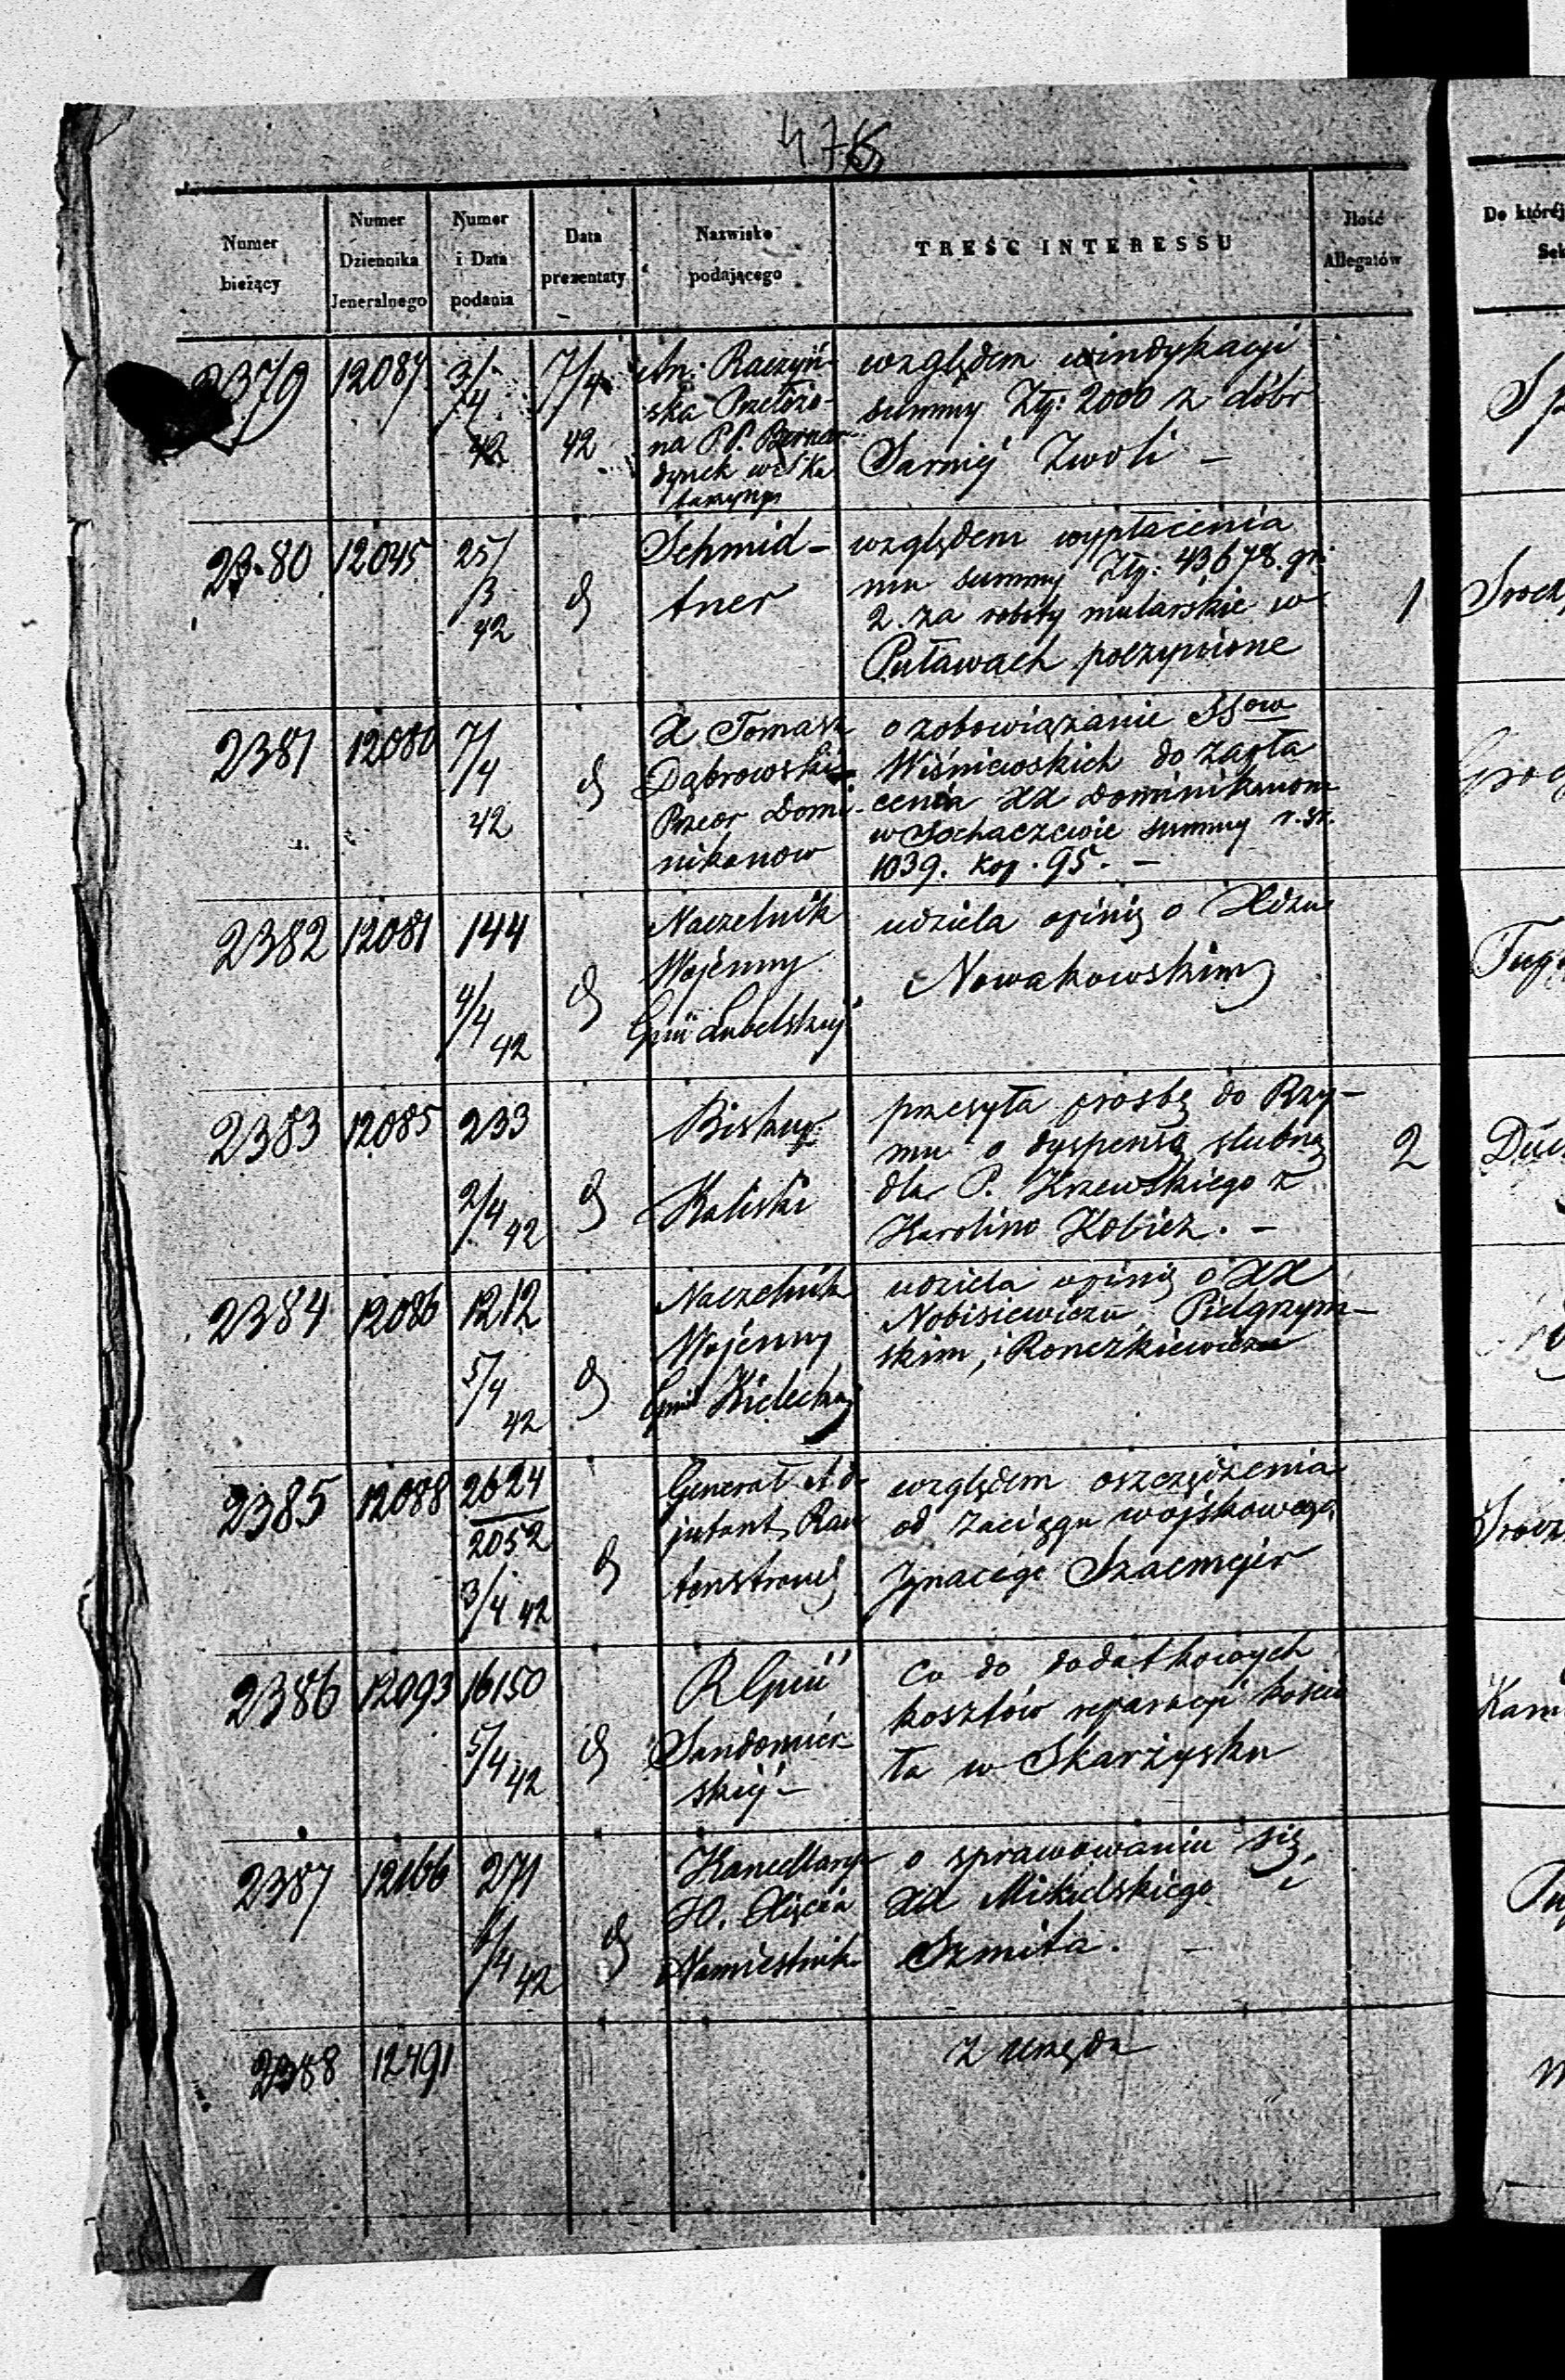 476
Numer bieżący
Numer Dziennika Jeneralnego
Numer i Data podania
Data prezentaty
Nazwisko podającego
TREŚĆ INTERESSU
Ilość Allegatów
De któréj
2379 12087 3/4 42 7/4 42
An: Raczyń-
ska Przełożo-
na P.P. Bernar-
dynek w
względem windykacyi
summy Złp: 2000 z dóbr
Sarniéj Zwoli –
2380 12045 25/3 42
Schmid-
tner
względem wypłacenia
mu summy Złp: 43678. gr:
2. za roboty mularskie w
Puławach poczynione
1
2381 12080 7/4 42
X Tomasz
Dąbrowski
Przeor Domi-
nikanow
o zobowiązanie SSow
Wiśniewskich do zapła
cenia XX Dominikanom
w Sochaczewie summy r. sr.
1039. kop. 95. –
2382 12081 144 4/4 42
Naczelnik
Wojenny
Gnii Lubelskiéj
udziela opinię o Xdzu
Nowakowskim
2383 12085 233 2/4 42
Biskup
Kaliski
przesyła prosbę do Rzy-
mu o dyspensę slubną
dla P. Krzewskiego z
Karolino Kobierz. –
2
2384 12086 1212 5/4 42
Naczelnik
Wojenny
Gnii Kieleckiéj
udziela opinię o XX
Nobisiewiczu, Pielgrzym-
skim, i Ronczkiewiczu
2385 12088 2624 2052 3/4 42
Generał Ad-
jutant Rau
tenstrauch
względem oszczędzenia
od zaciągu wojskowego,
Jgnacego Szacmejer
2386 12093 16150 5/4 42
R Gnii
Sandomier
skiéj –
Co do dodatkowych
kosztów reparacyi koscio
ła w Skarżysku
2387 12166 271 6/4 42
Kancellarya
JO. Xięcia
Namiestnika
o sprawowaniu się
XX Mikielskiego i
Szmita. –
2388 12491
z urzędu